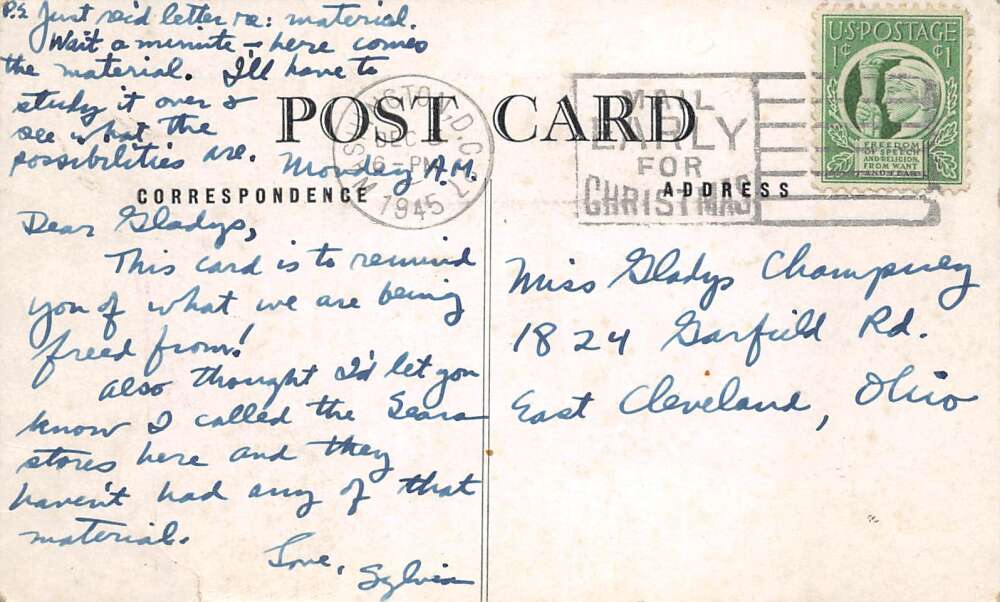 P.S. Just rec'd letter re: material.
Wait a minute - here comes
the material. I'll have to
study it over &
see what the
possibilities are.
POST CARD
WASHINGTON, D.C. 7
DEC
6-PM
1945
MAIL
EARLY
FOR
CHRISTMAS
U.S. POSTAGE
1¢ ¢1
FREEDOM
OF SPEECH
AND RELIGION,
FROM WANT
AND FEAR
Monday A.M.
CORRESPONDENCE
ADDRESS
Dear Gladys,
This card is to remind
you of what we are being
freed from!
Also thought I'd let you
know I called the Sears
stores here and they
haven't had any of that
material.
Love,
Sylvia
Miss Gladys Champney
1824 Garfield Rd.
East Cleveland, Ohio